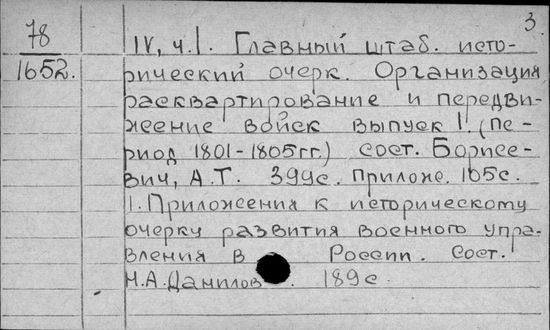 3
78
1652.
IV, ч.1. Главный штаб. исто-
рический очерк. Организация
расквартирование и передви-
жение войск выпуск 1. (пе-
риод 1801-1805гг.) сост. Борисе-
вич, А.Т. 399с. Прилож. 165с.
1. Приложения к историческому
очерку развития военного упра-
вления в России. Сост.
Н.А.Данилов. 189с.